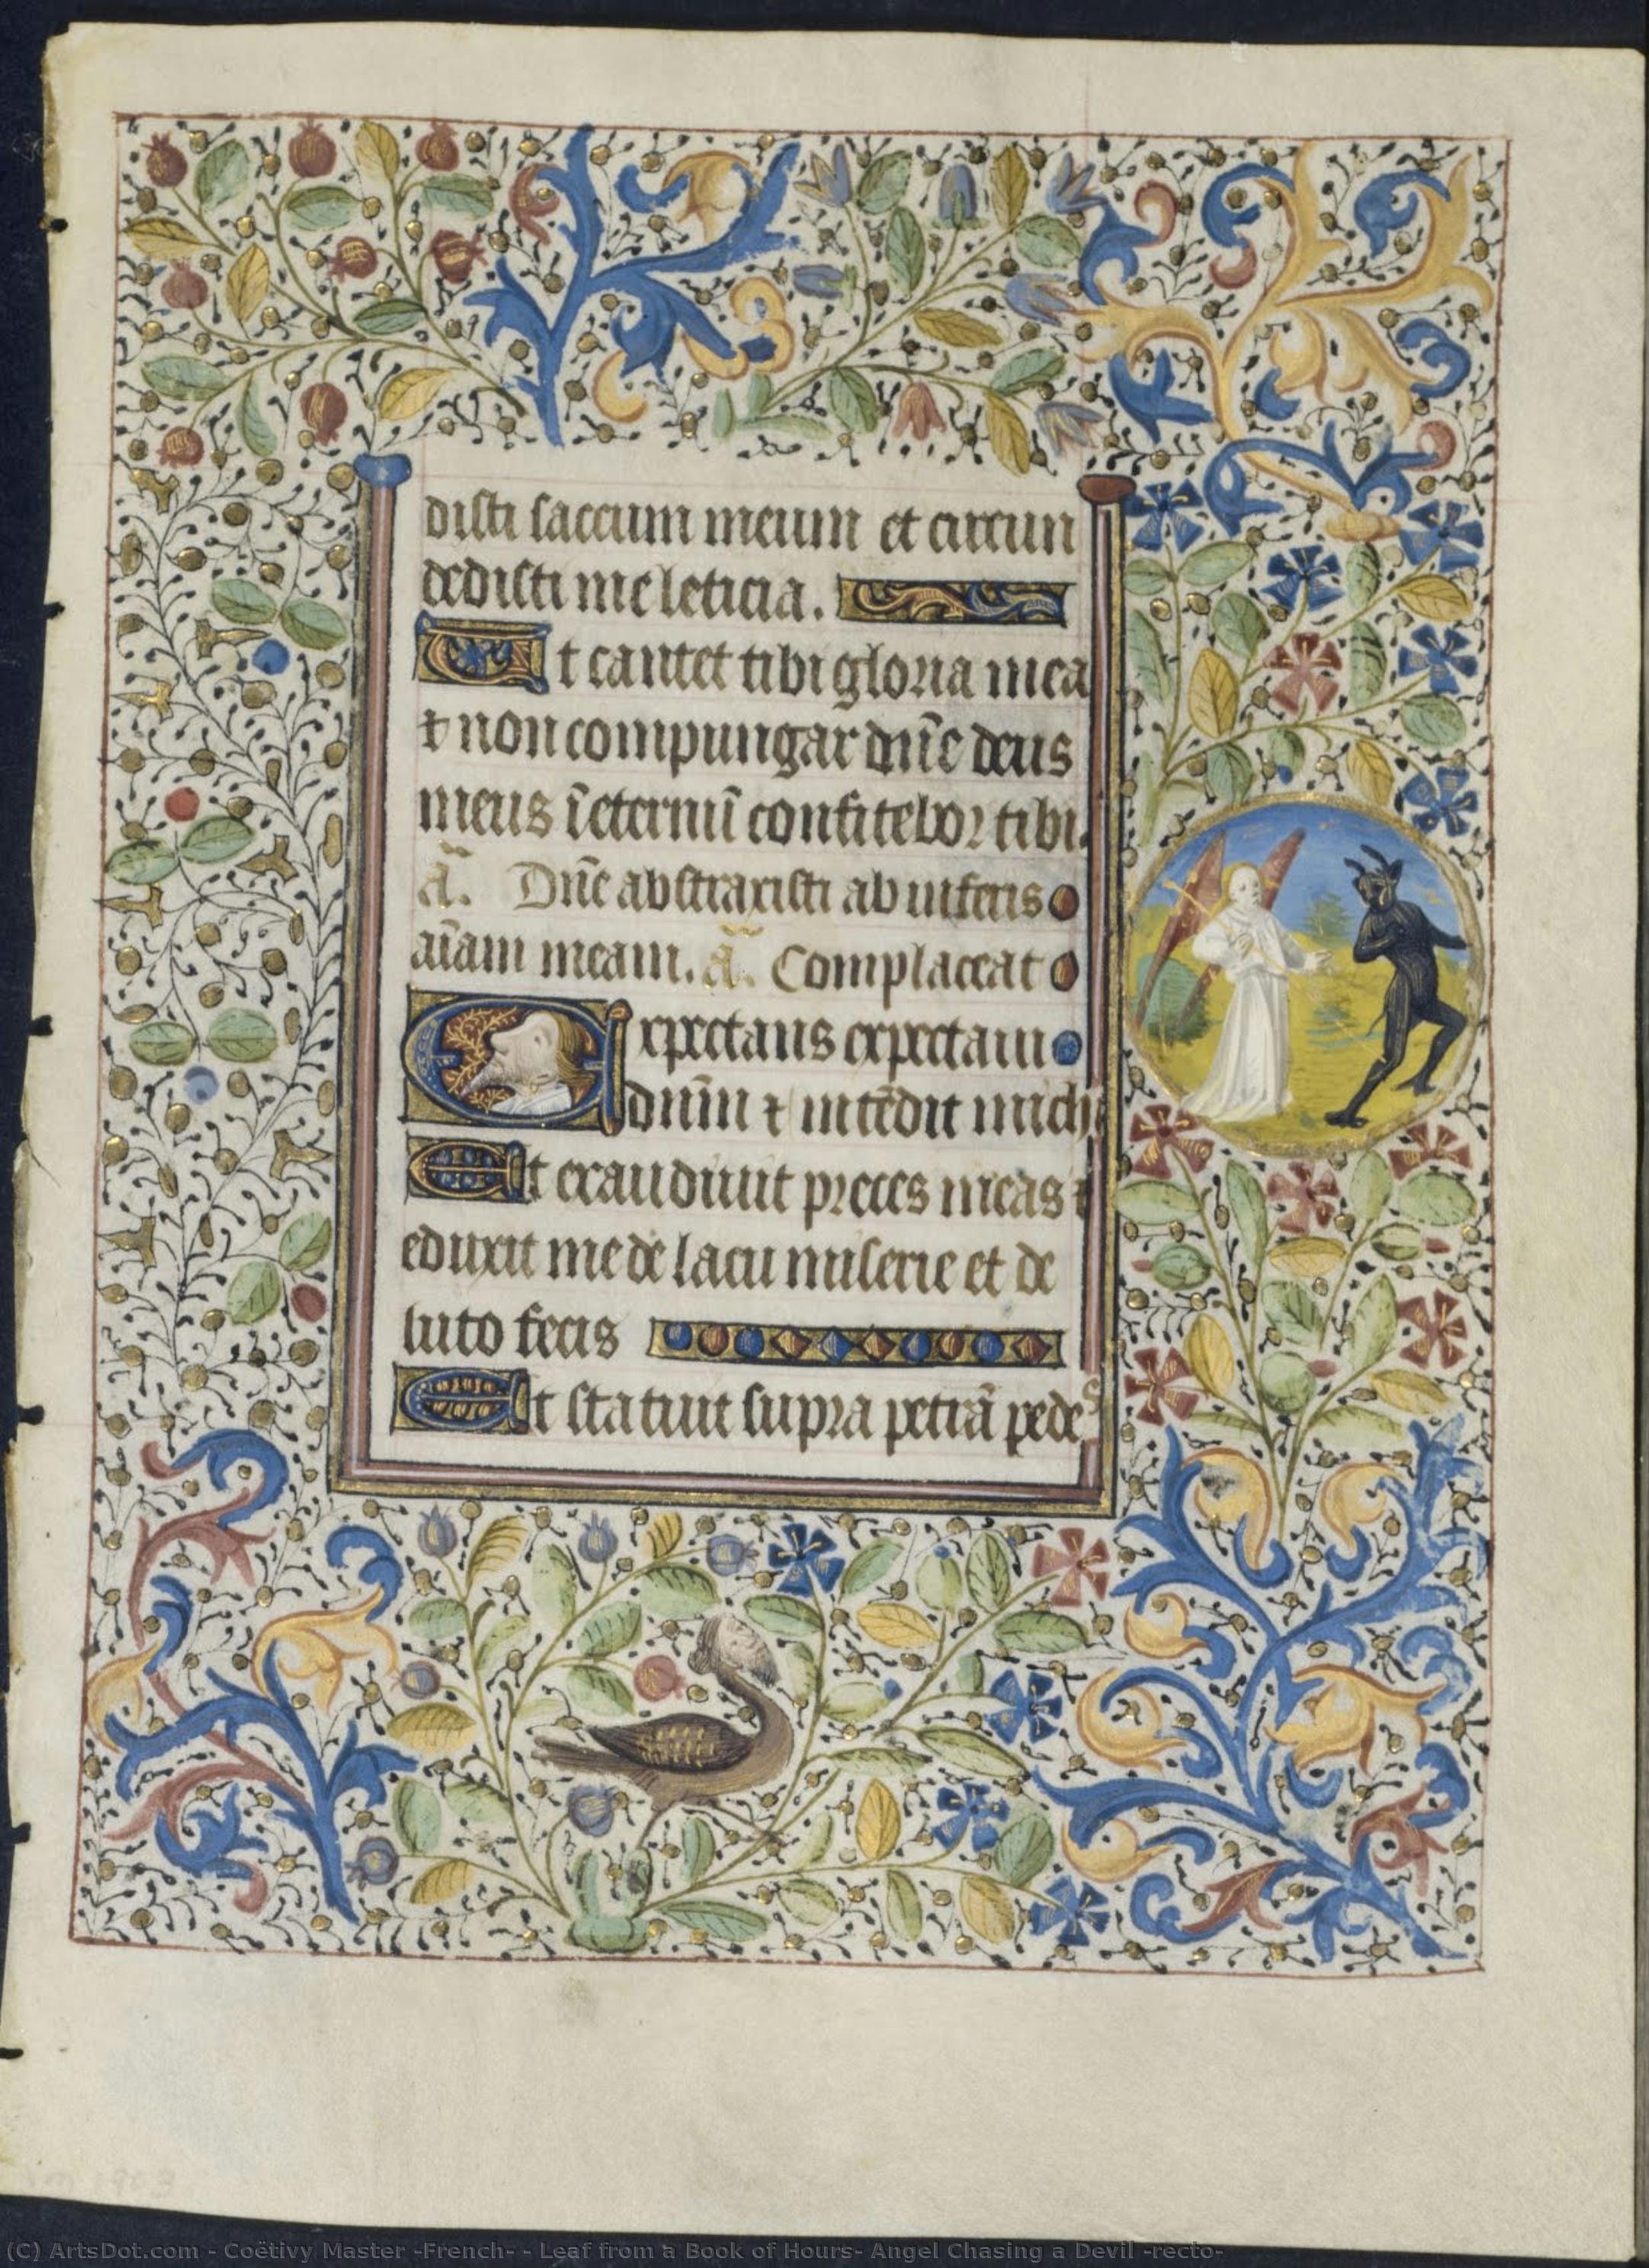 disti saccum meum et circun
dedisti me leticia.
Ut cantet tibi gloria mea
⁊ non compungar dn̄e deus
meus ī eternū confitebor tibi.
ā. Dn̄e abstraxisti ab inferis
aīam meam. ā. Complaceat
Expectans expectaui
dn̄m ⁊ intēdit michi
Et exaudiuit preces meas ⁊
eduxit me de lacu miserie et de
luto fecis
Et statuit supra petrā pedes
(C) ArtsDot.com - Coëtivy Master -French- - Leaf from a Book of Hours- Angel Chasing a Devil -recto-